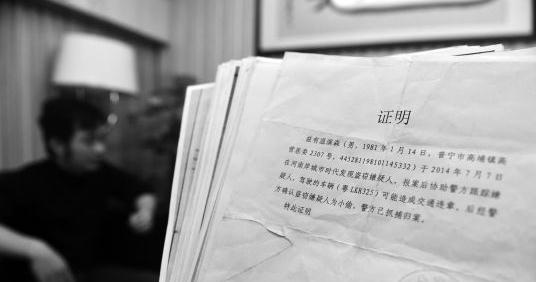 证明
兹有温演森（男，1981年1月14日，普宁市高埔镇高
营居委2307号，445281198101145332）于2014年7月7日
在河南岸城市时代发现盗窃嫌疑人，报案后协助警方跟踪嫌
疑人，驾驶的车辆（粤LKR325）可能造成交通违章。后经警
方确认盗窃嫌疑人为小偷，警方已抓捕归案。
特此证明